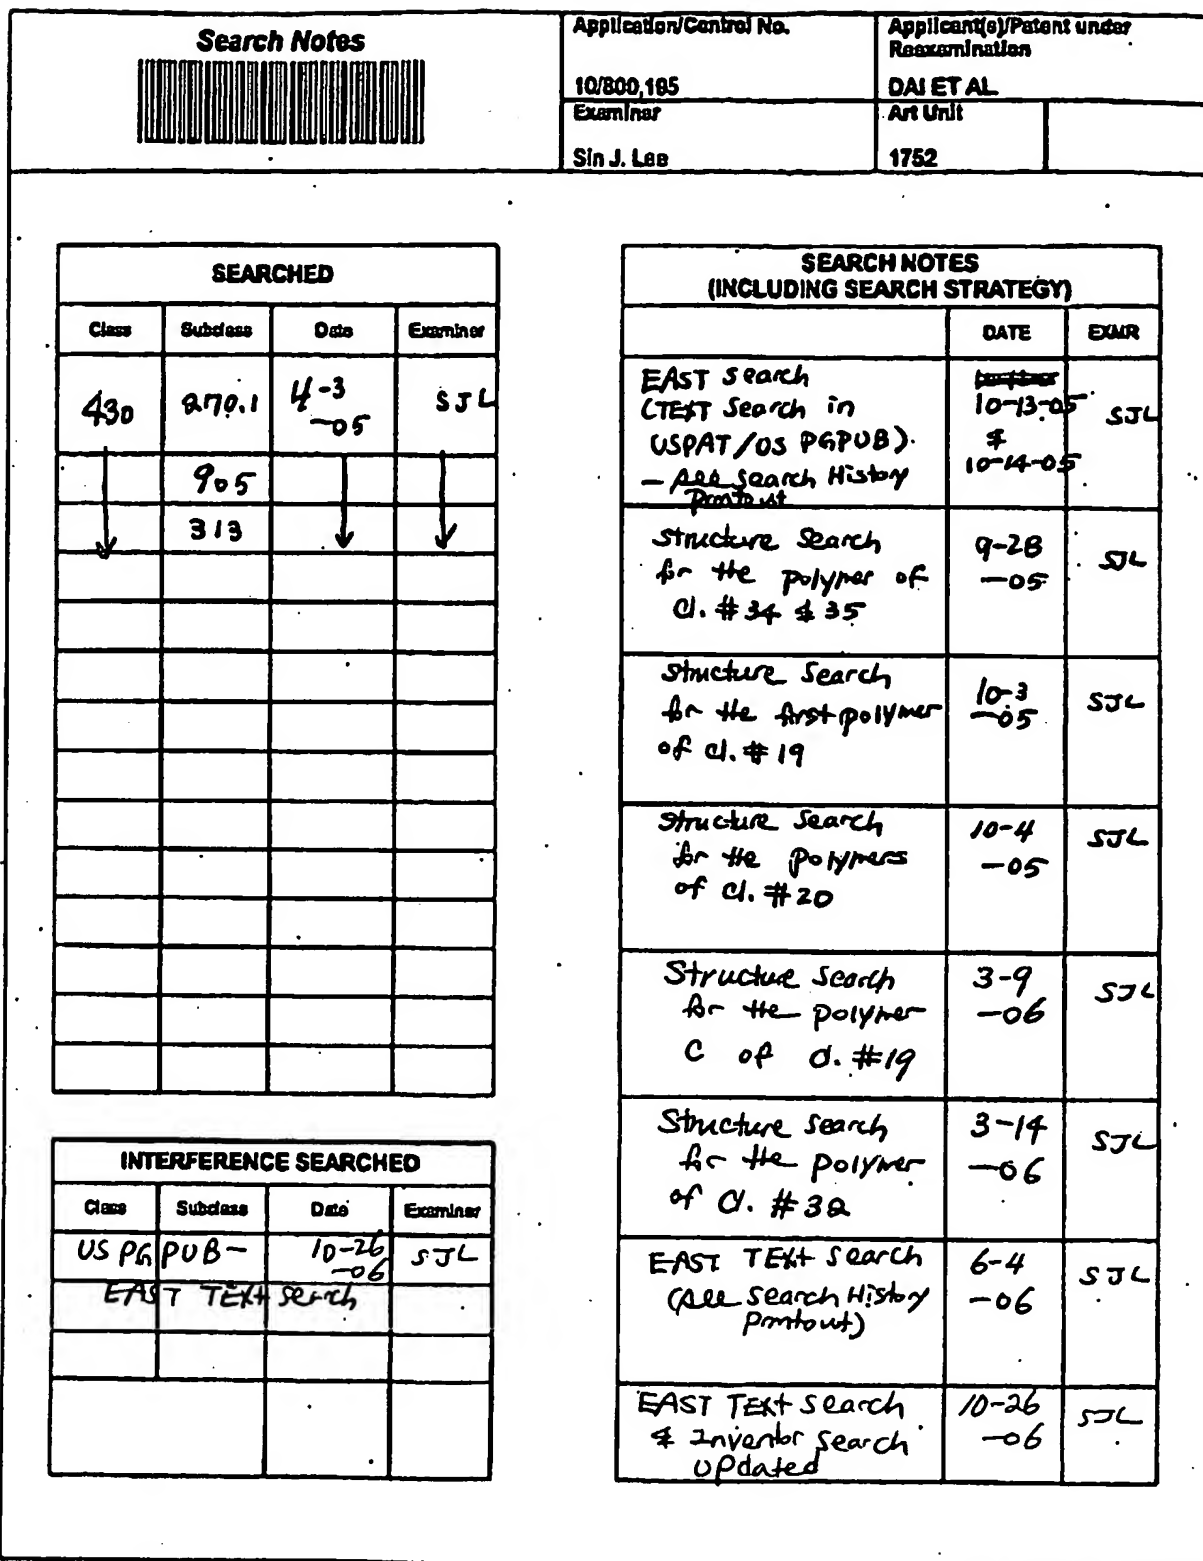 Search Notes
Application/Control No.
10/800,195
Applicant(s)/Patent under
Reexamination
DAI ET AL.
Examiner
Sin J. Lee
Art Unit
1752
SEARCHED
Class Subclass Date Examiner
430 270.1 4-3
-05 SJL
905
313
INTERFERENCE SEARCHED
Class Subclass Date Examiner
US PGPUB- 10-26
-06 SJL
EAST TEXT search
SEARCH NOTES
(INCLUDING SEARCH STRATEGY)
DATE EXMR
EAST search
(TEXT Search in
USPAT/US PGPUB).
- see search History
Printout
10-13-05
&
10-14-05
SJL
Structure Search
for the polymer of
cl. #34 & 35
9-28
-05
SJL
Structure Search
for the first polymer
of cl. #19
10-3
-05
SJL
Structure Search
for the polymers
of cl. #20
10-4
-05
SJL
Structure search
for the polymer
C of cl. #19
3-9
-06
SJL
Structure search
for the polymer
of cl. #32
3-14
-06
SJL
EAST TEXT search
(see search History
printout)
6-4
-06
SJL
EAST TEXT search
& Inventor search
updated
10-26
-06
SJL